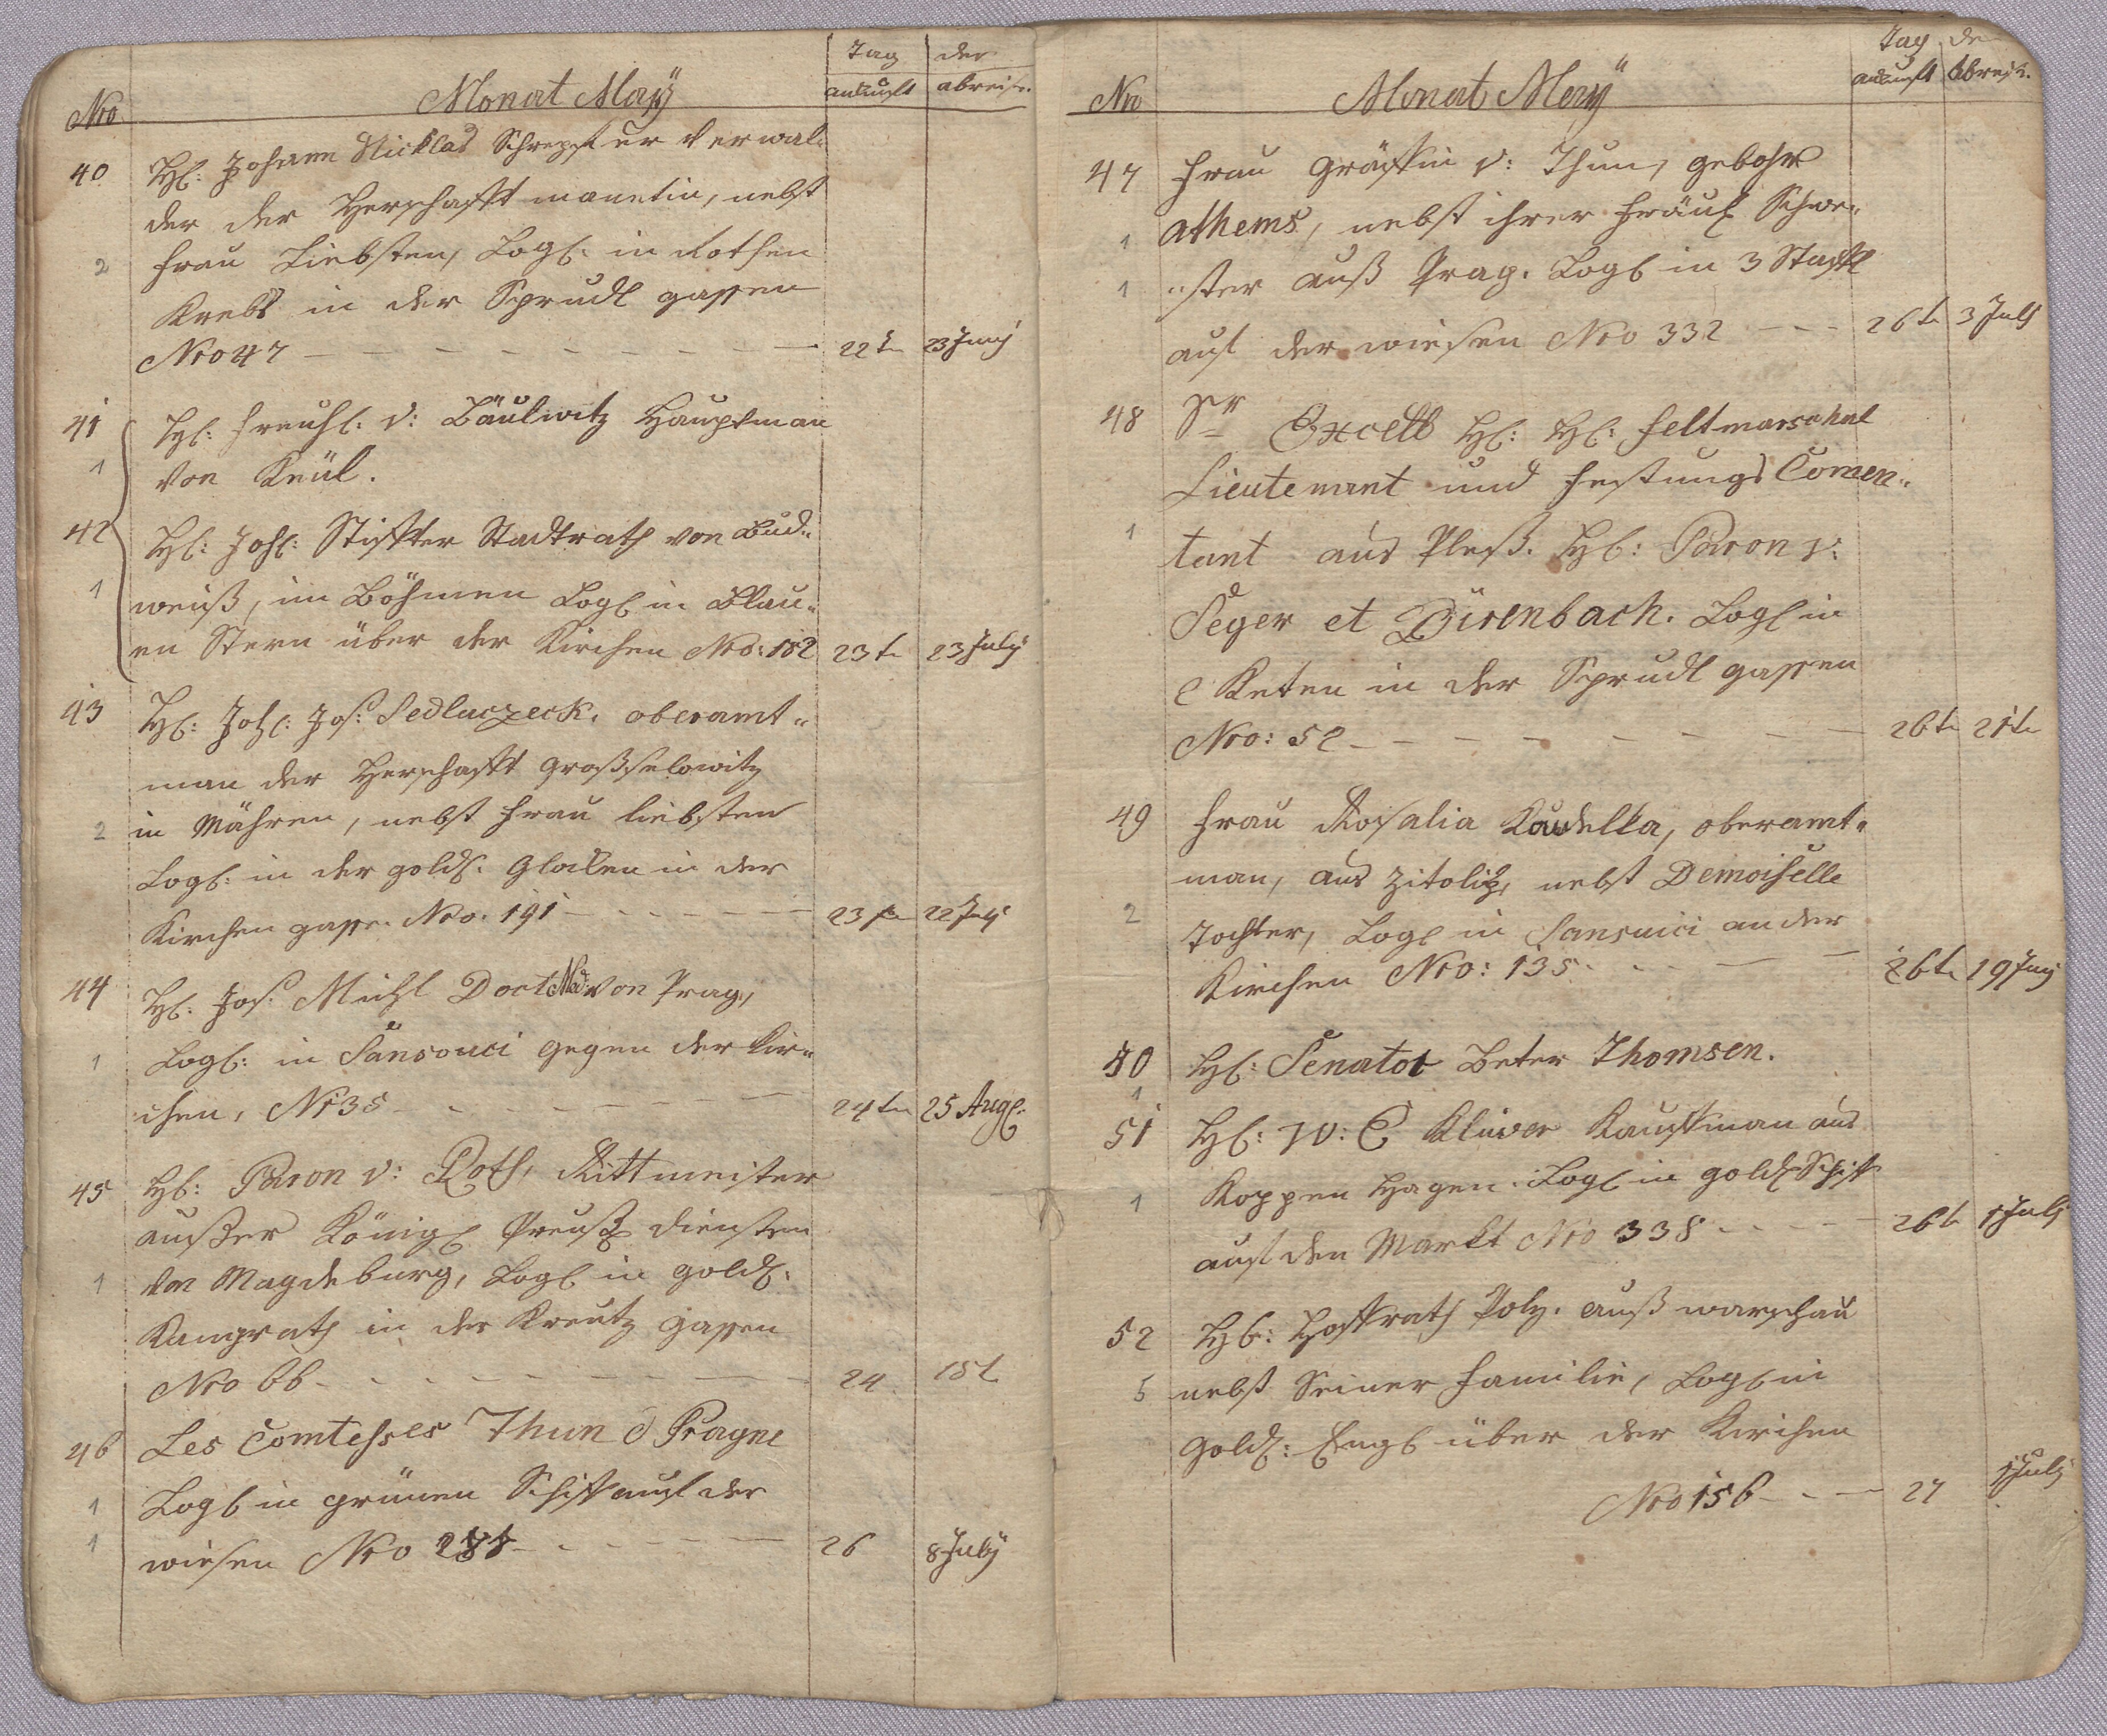 Tag der
Nro Monat May ankunft abreise.
40 H: Johann Nicklas Schrepfl ur Verwal-
der der Herschafft manetin, nebst
2 frau Liebsten, Log: in Rothen
Krebs in der Sprudl gassen
Nro 47 22t 23 Junj
41 H: freuh: v: Bäulwitz Hauptman
1 von Keül.
42 H: Joh: Stiffter Stadtrath von Bud-
1 weiß, im Böhmen Log in Blau-
en Stern über der Kirchen Nro: 182 23t 23 July
43 H: Joh: Jos: Sedlaczeck. oberamt-
man der Herschafft großselowitz
2 in Mähren, nebst frau liebsten
Log: in der gold. Glocken in der
Kirchen gasse. Nro. 191 23t 22
44 H: Jos: Michl Doct Med: von Prag,
1 Log: in Sansouci gegen der Kir-
chen, Nr 35 24t 25 Aug:
45 H: Baron v: Roth, Rittmeister
außer König Preuß diensten
1 von Magdeburg, Log in gold.
Kamprath in der Kreutz gassen
Nro 66 24 15t
46 Les Comtesses Thun d Prague
1 Log in grünen Schiff auf der
1 wiesen Nro 26 8 July
Tag de
Nro Monat May ankunft Abreis.
47 frau gräffin v: Thun, gebohr
1 athems, nebst ihrer fräul Schwe-
1 -ster auß Prag. Log in 3 Staffl
auf der wiesen Nro 332 26t 3 July
48 Sr Excell H: H: feltmarschal
Lieutenant und festungs Comen-
1 tant aus Pleß. H: Baron v:
Seger et Dürenbach. Log in
2 Keten in der Sprudl gassen
Nro: 52 26t 21t
49 frau Rosalia Kaudelka, oberamt-
man, aus Zitolib, nebst Demoiselle
2 Tochter, Log in Sansuici an der
Kirchen Nro: 135 26t 19 Junj
50 H: Senator Peter Thomsen.
1
51 H: W: C Klüver Kauffman aus
1 Koppen Hagen. Log in gold Schiff
auf den Markt Nro 338 26t 1 July
52 H: Hoffrath Poly. auß warschau
5 nebst Seiner familie, Log in
Gold: Engl über der Kirchen
Nro 156 27 1 July